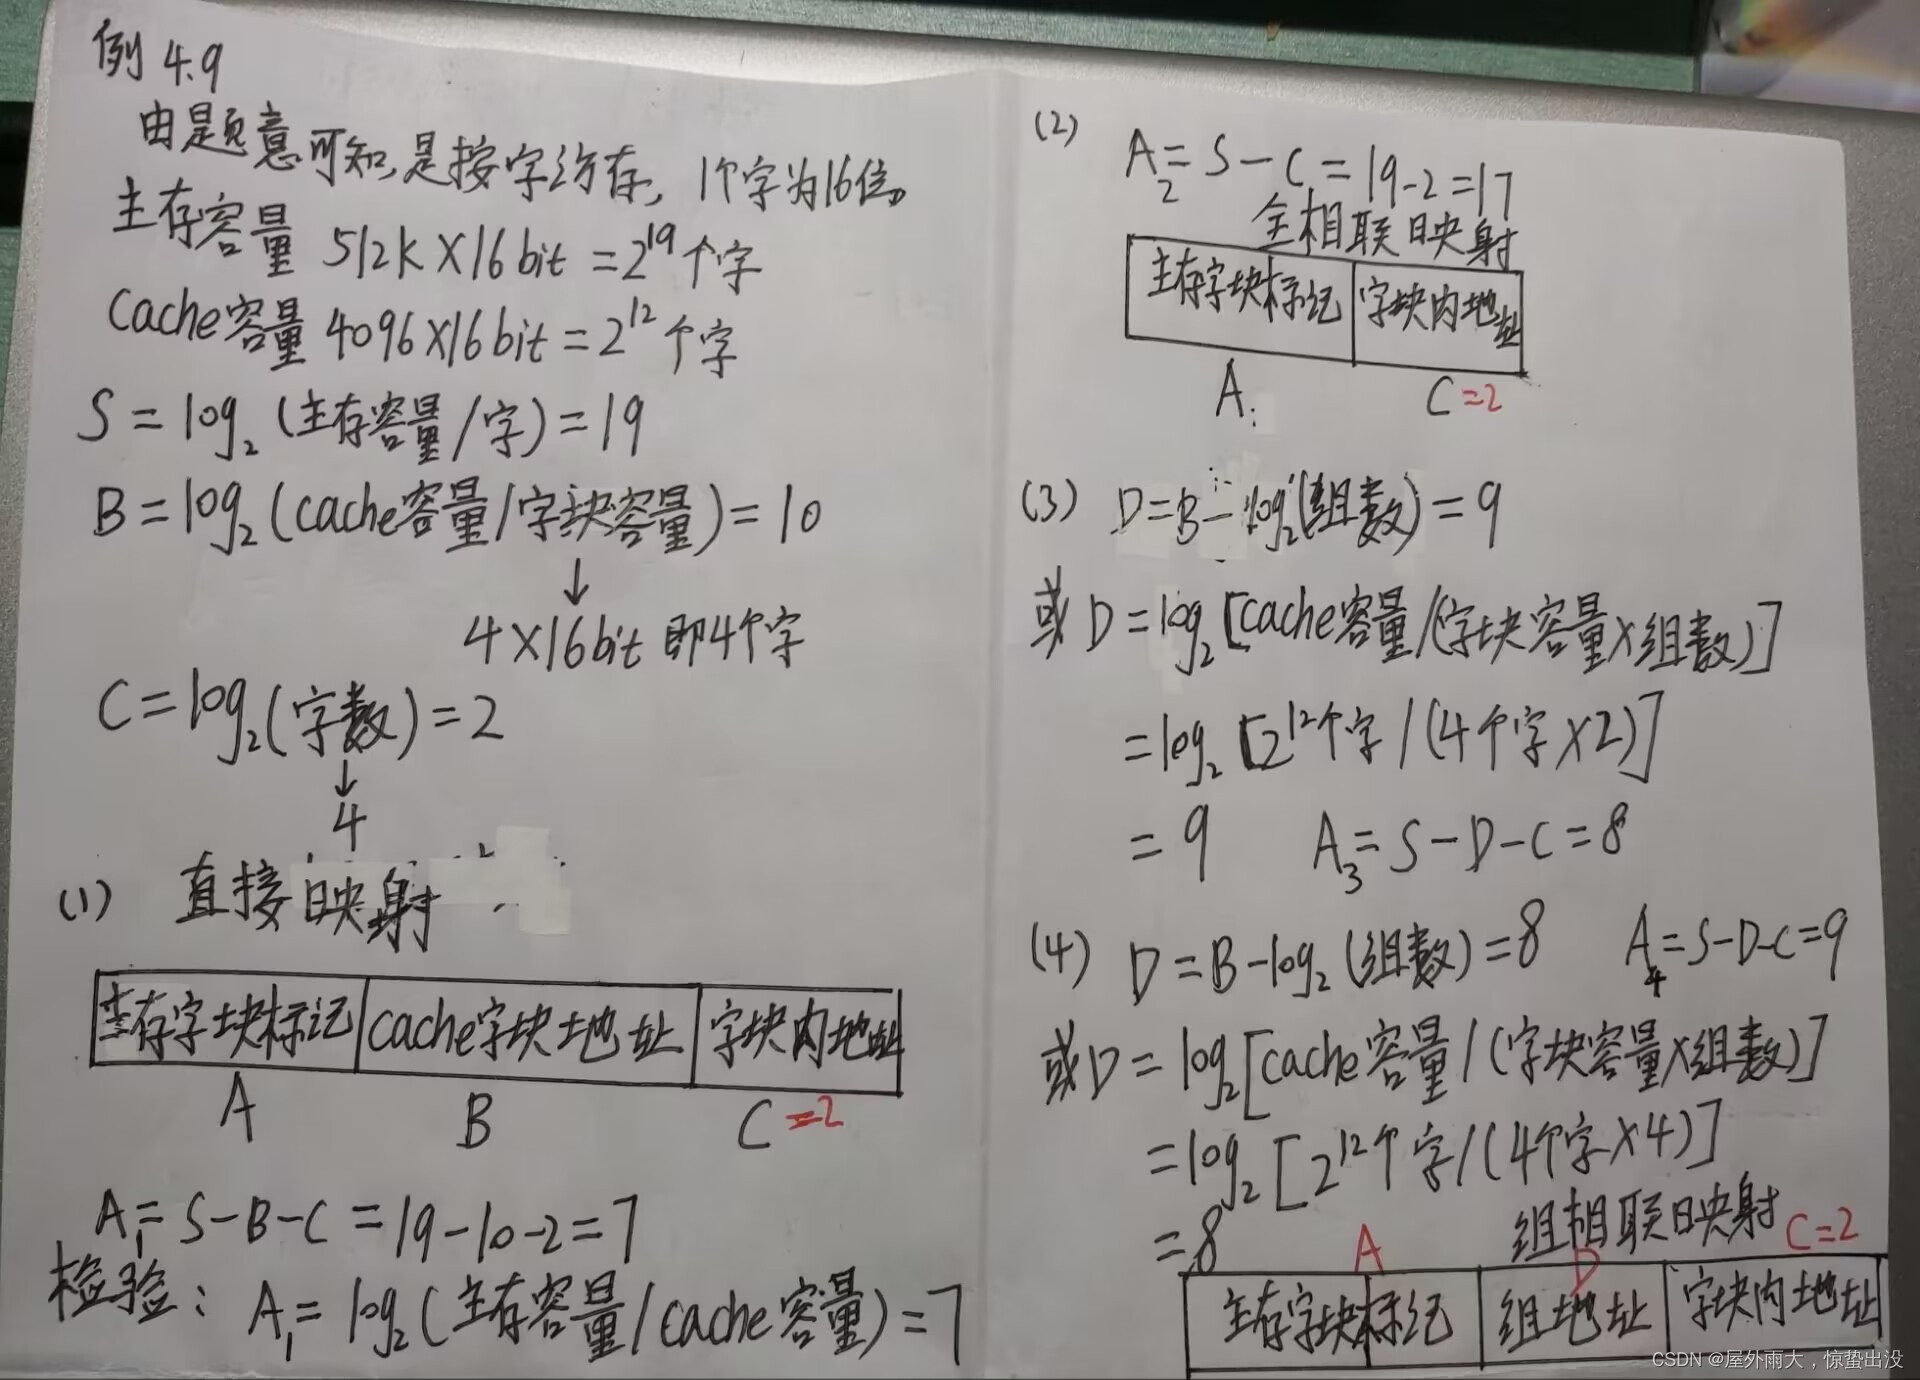 例4.9
由是页意可知,是按字访存,1个字为16位。
主存容量 512K×16bit=2^19个字
Cache容量 4096×16bit=2^12个字
S=log₂(主存容量/字)=19
B=log₂(cache容量/字块容量)=10
↓
4×16bit 即4个字
C=log₂(字数)=2
↓
4
(1) 直接映射
主存字块标记 cache字块地址 字块内地址
A B C=2
A₁=S-B-C=19-10-2=7
检验:A₁=log₂(主存容量/cache容量)=7
(2) A₂=S-C=19-2=17
全相联映射
主存字块标记 字块内地址
A C=2
(3) D=B-log₂(组数)=9
或D=log₂[cache容量/(字块容量×组数)]
=log₂[2^12个字/(4个字×2)]
=9 A₃=S-D-C=8
(4) D=B-log₂(组数)=8 A₄=S-D-C=9
或D=log₂[cache容量/(字块容量×组数)]
=log₂[2^12个字/(4个字×4)]
=8
组相联映射
A D C=2
主存字块标记 组地址 字块内地址
CSDN @屋外雨大，惊蛰出没